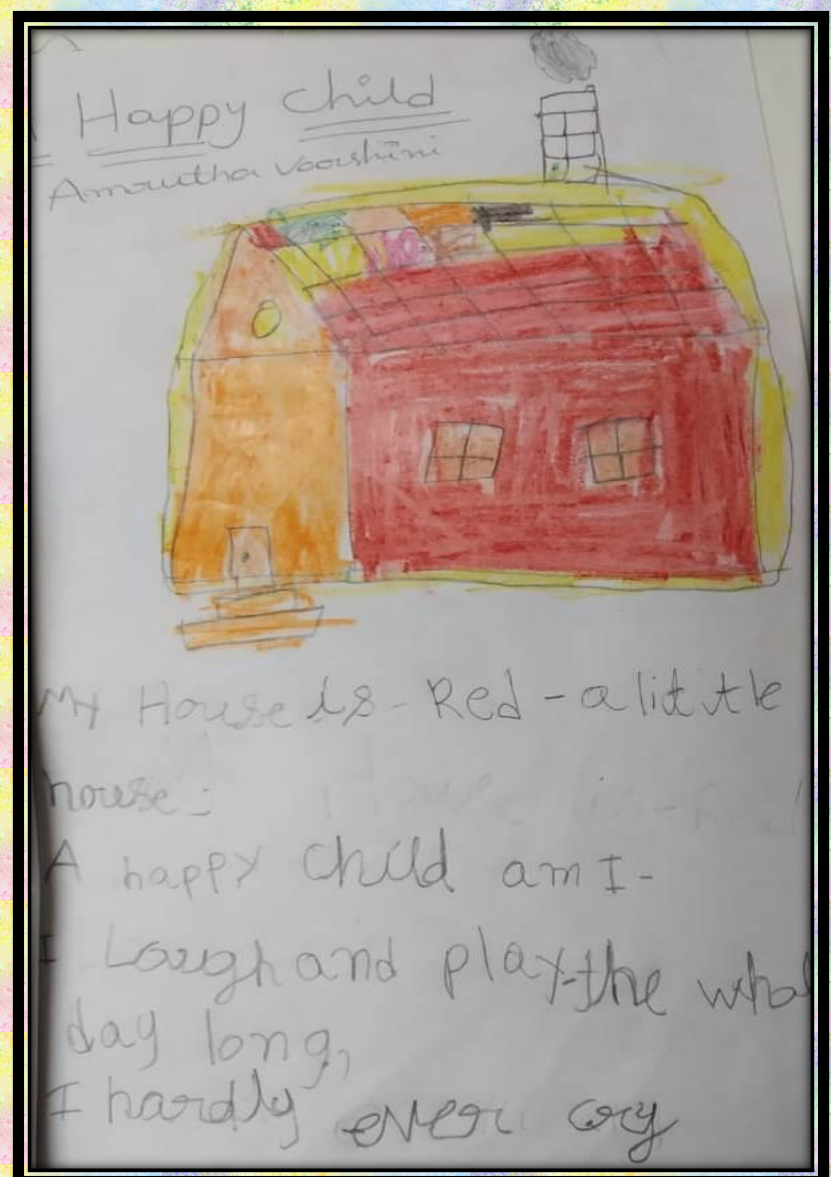 Happy Child
Amrutha Varshini
My House is - Red - a little
house -
A happy child am I -
I Laugh and play the
day long,
I hardly ever cry